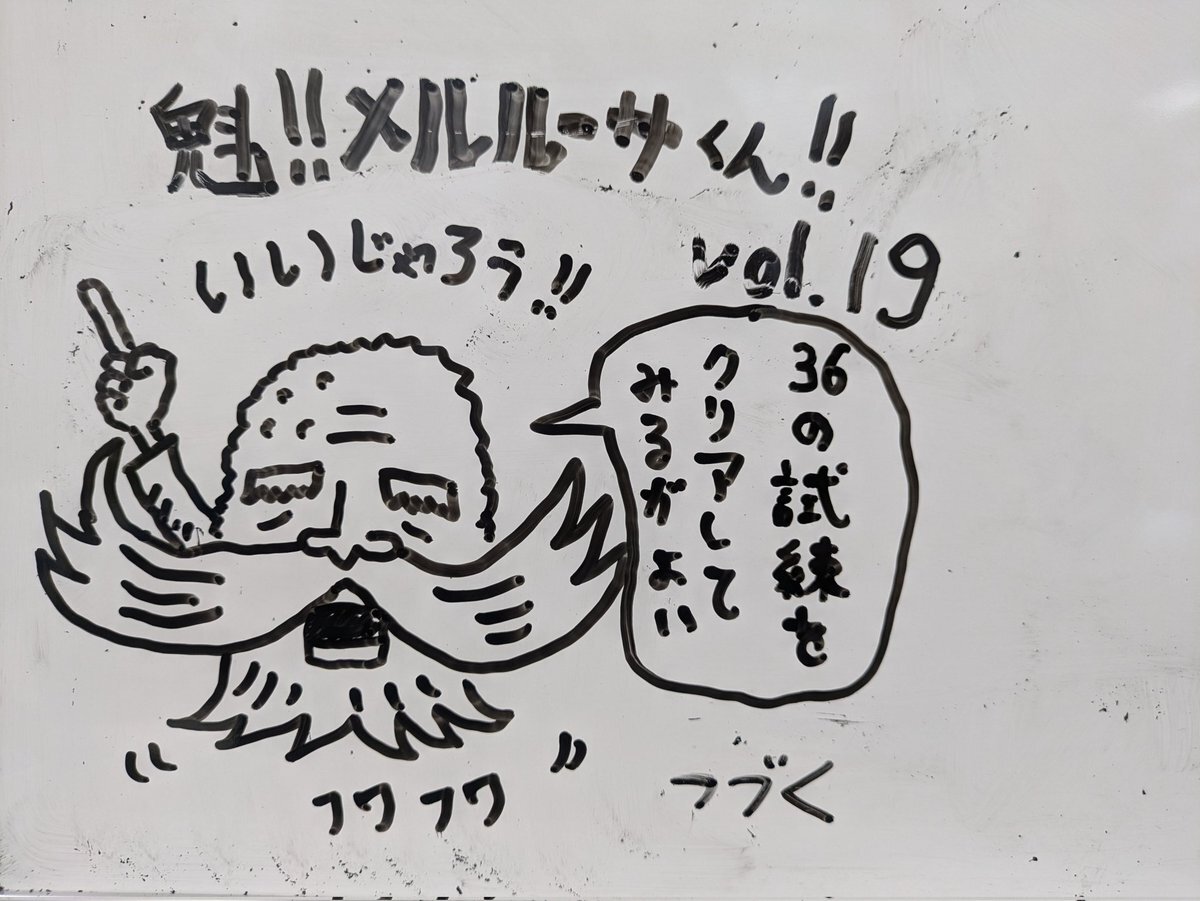 魁!!メルルーサくん!!
vol.19
いいじゃろう!!
36の試練を
クリアして
みるがよい
フワフワ
つづく